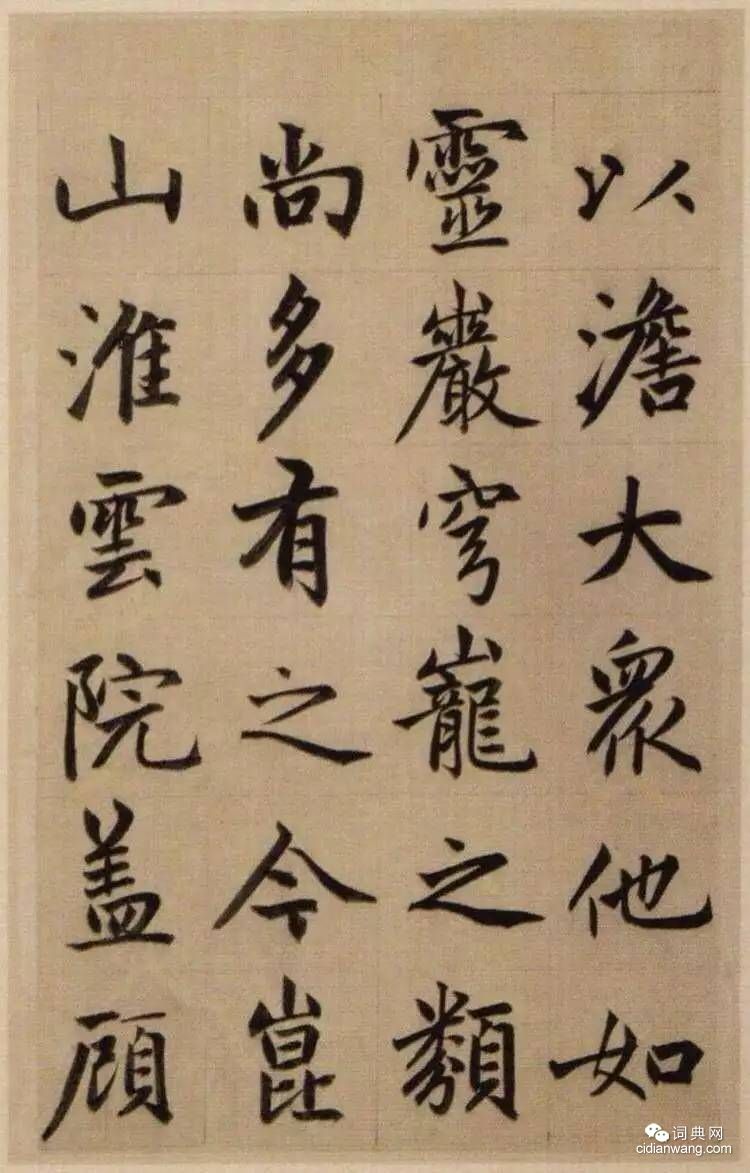 以澹大眾他如
靈巖穹巃之類
尚多有之今崑
山淮雲院盖顧
词典网
cidianwang.com